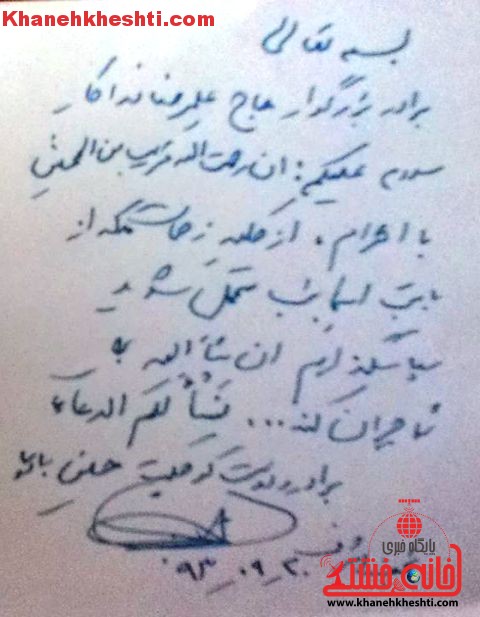 Khanehkheshti.com
بسمه تعالی
برادر بزرگوار حاج علیرضا فداکار
سلام علیکم: ان رحمت الله قریب من المحسنین
با احترام، از کلیه زحمات گذار
بابت متحمل شدید
سپاسگذارم ان شاءالله به
جبران کند... نسألکم الدعاء
برادر کوچکت
۹۳_۰۹_۲۰
پایگاه خبری
خانه خشتی
www.khanehkheshti.com